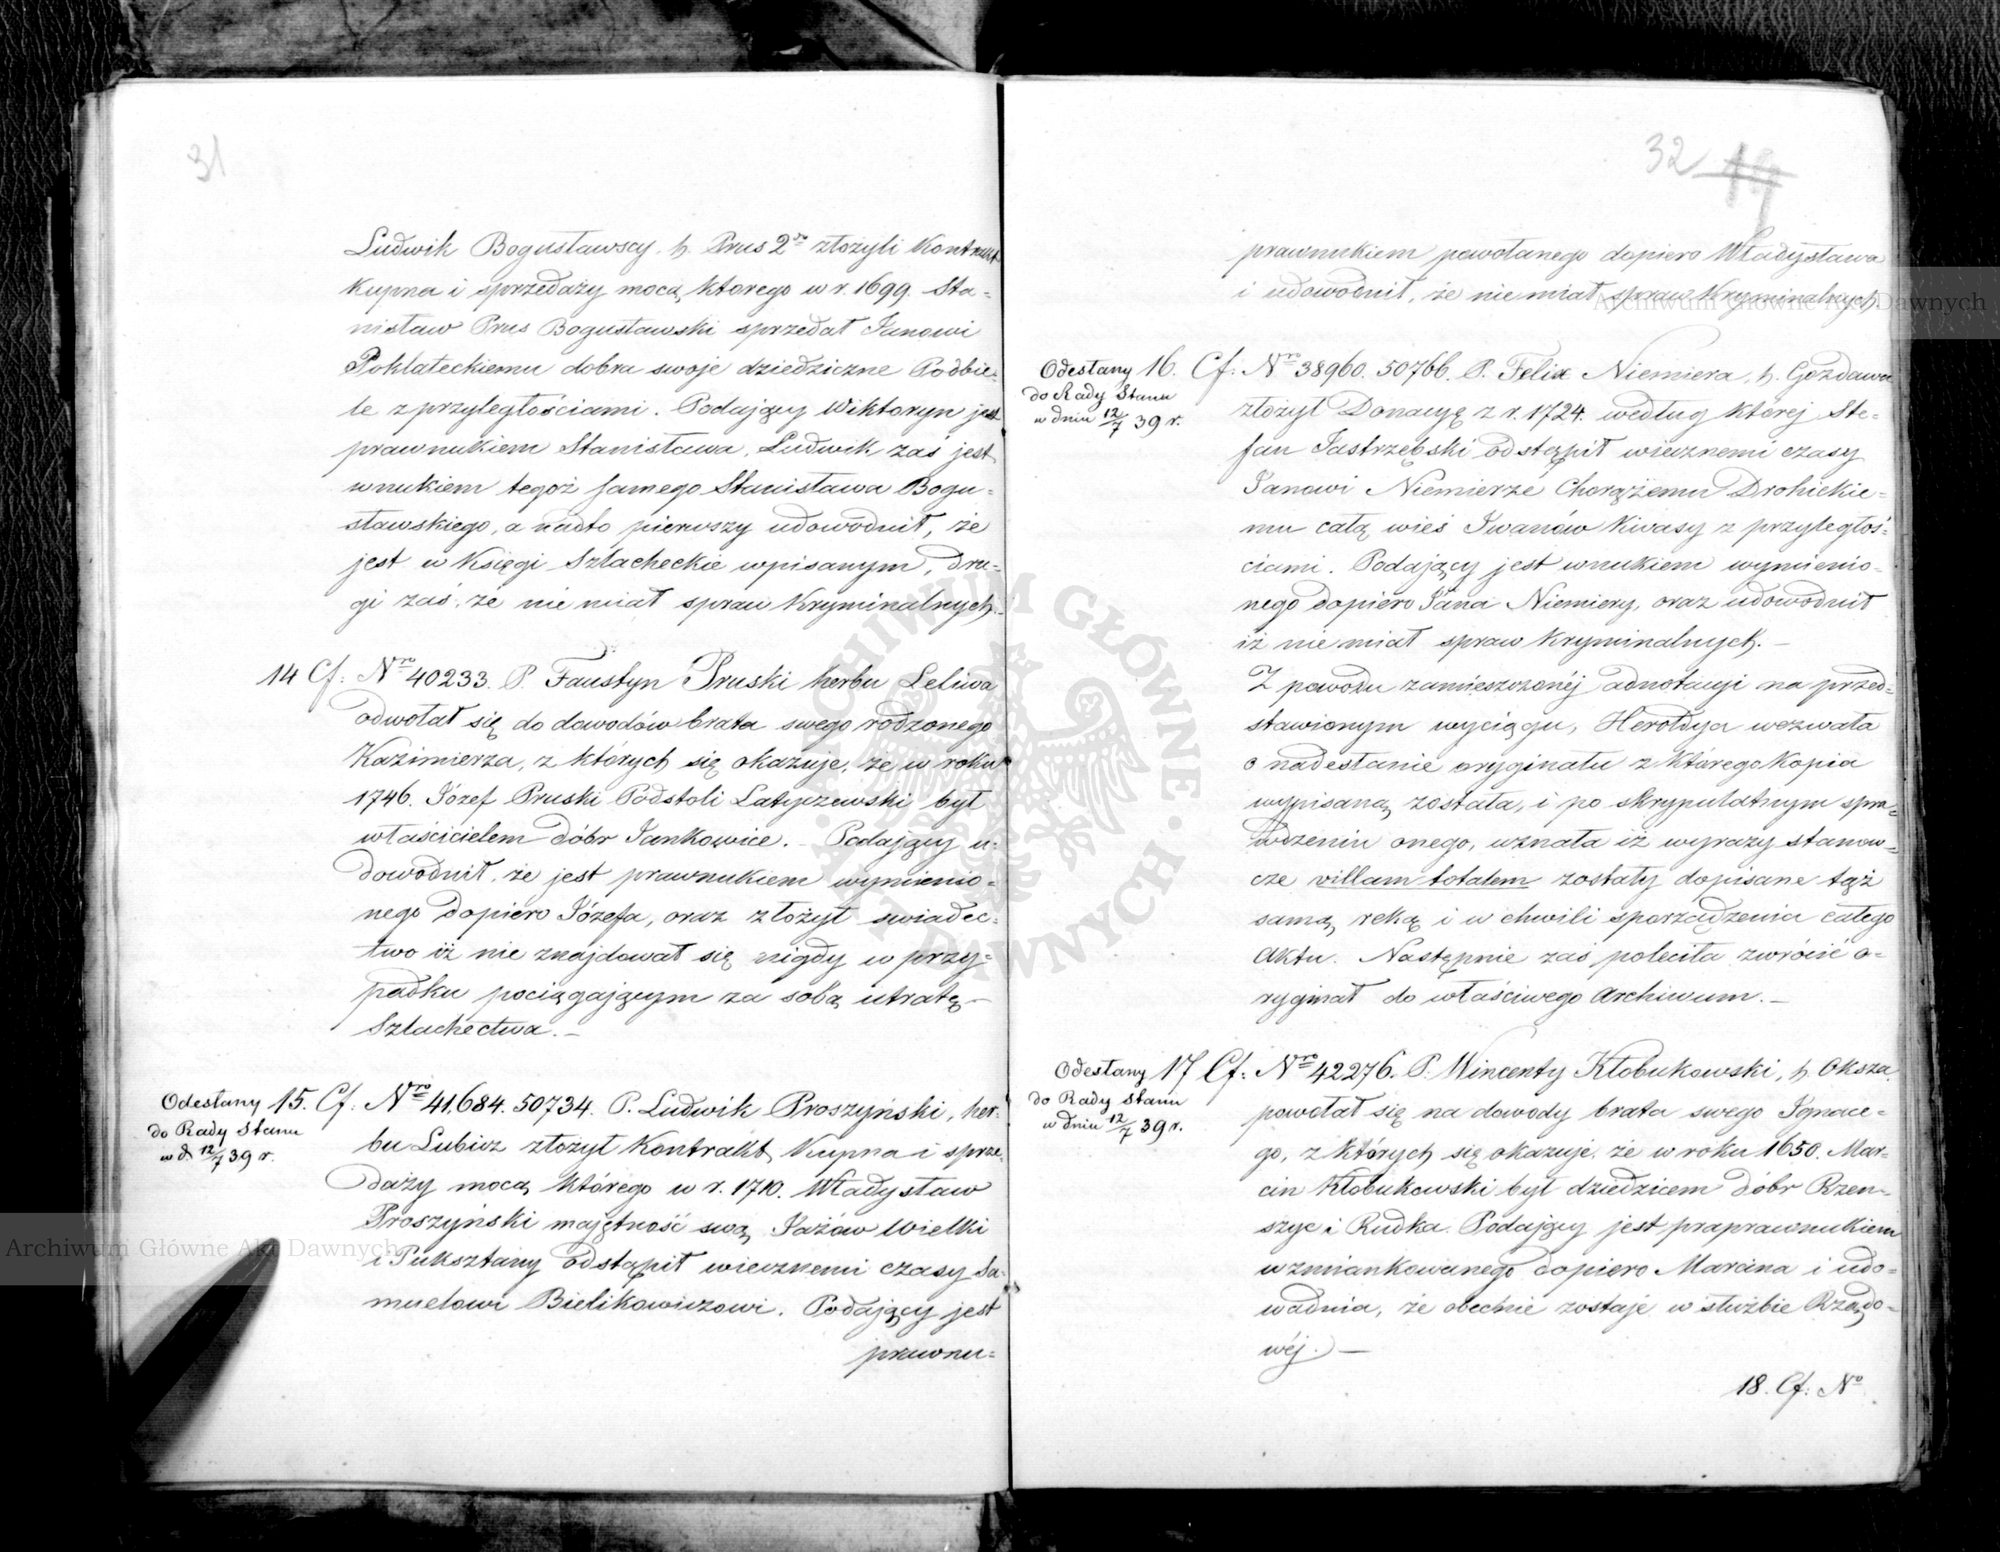 31
Ludwik Bogusławscy h. Prus 2º złożyli Kontrakt
Kupna i sprzedaży mocą ktorego w r. 1699. Sta=
nisław Prus Bogusławski sprzedał Janowi
Pokłateckiemu dobra swoje dziedziczne Podbie=
le z przyległościami. Podający Wiktoryn jest
prawnukiem Stanisława, Ludwik zaś jest
wnukiem tegoż samego Stanisława Bogu=
sławskiego, a nadto pierwszy udowodnił, że
jest w Księgi Szlacheckie wpisanym, dru=
gi zaś, że nie miał spraw Kryminalnych.
14 Cf: Nro 40233. P. Faustyn Pruski herbu Leliwa
odwołał się do dowodów brata swego rodzonego
Kazimierza, z których się okazuje, że w roku
1746. Józef Pruski Podstoli Latyczewski był
właścicielem dóbr Jankowice. – Podający u=
dowodnił, że jest prawnukiem wymienio=
nego dopiero Józefa, oraz złożył swiadec=
two iż nie znajdował się nigdy w przy=
padku pociągającym za sobą utratę
Szlachectwa. –
Odesłany
do Rady Stanu
w d. 12/7 39 r.
15. Cf: Nro 41.684. 50734. P. Ludwik Proszyński, her=
bu Lubicz złożył Kontrakt Kupna i sprze=
daży mocą którego w r. 1710. Władysław
Proszyński majętność swą Jażów Wielki
i Puksztany odstąpił wiecznemi czasy Sa=
muelowi Bielikowiczowi. Podający jest
prawnu=
32 19
prawnukiem powołanego dopiero Władysława
i udowodnił, że nie miał spraw Kryminalnych.
Odesłany
do Rady Stanu
w dniu 12/7 39 r.
16. Cf: Nro 38960. 50766. P. Felix Niemiera, h. Gozdawa
złożył Donacyę z r. 1724. według której Ste=
fan Jastrzębski odstąpił wiecznemi czasy
Janowi Niemierze Chorążemu Drohickie=
mu całą wieś Iwanów Kwasy z przyległoś=
ciami. Podający jest wnukiem wymienio=
nego dopiero Jana Niemiery, oraz udowodnił
iż nie miał spraw Kryminalnych. –
Z powodu zamieszczonéj adnotacyi na przed=
stawionym wyciągu, Heroldya wezwała
o nadesłanie oryginału z którego Kopia
wypisaną została, i po skrypulatnym spra=
wdzeniu onego, uznała iż wyrazy stanow=
cze villam totalem zostały dopisane tąż
samą ręką i w chwili sporządzenia całego
Aktu. Następnie zaś poleciła zwróić o=
ryginał do właściwego Archiwum. –
Odesłany
do Rady Stanu
w dniu 12/7 39 r.
17 Cf: Nro 42276. P. Wincenty Kłobukowski, h. Oksza
powołał się na dowody brata swego Ignace=
go, z których się okazuje, że w roku 1650. Mar=
cin Kłobukowski był dziedzicem dóbr Rzen=
szyc i Rudka. Podający jest praprawnukiem
wzmiankowanego dopiero Marcina i udo=
wadnia, że obecnie zostaje w służbie Rządo=
wéj. –
18. Cf: Nº
Archiwum Główne Akt Dawnych
Archiwum Główne Akt Dawnych
ARCHIWUM GŁÓWNE AKT DAWNYCH